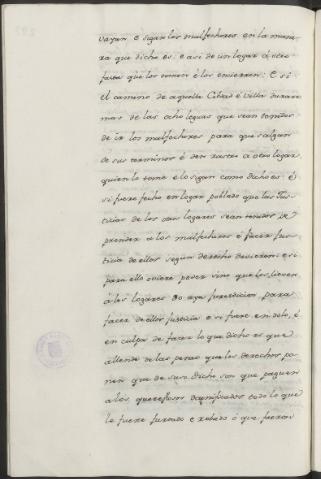 vayan e sigan los malfechores en la mane
ra que dicho es: e asi de un logar á otro
fasta que los tomen é los encierren: E si
el camino de aquella Cibdad é Villa durare
mas de las ocho leguas que sean tenidos
de ir los malfechores para que salgan
de sus terminos é den rastro a otro logar
quien lo tome e lo sigan como dicho es: é
si fuere fecho en logar poblado que las Jus
ticias de los tales logares sean tenidos de
prender a los malfechores e facer jus
ticia de ellos segun derecho devieren e si
para ello oviere poder sino que los lieven
á los logares do aya juredicion para
facer de ellos justicia e si fuere en dolo, é
en culpa de facer lo que dicho es que
allende de las penas que los derechos po
nen que de suso dicho son que paguen
a los querellosos dagnificados todo lo que
le fuere furtado e robado ó que fueron